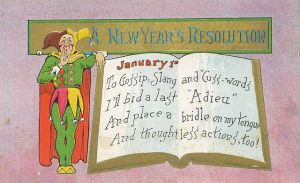 A NEW YEAR'S RESOLUTION
January 1st
To Gossip, Slang and "Cuss-words
I'll bid a last "Adieu"
And place a bridle on my tongue
And thoughtless actions, too!